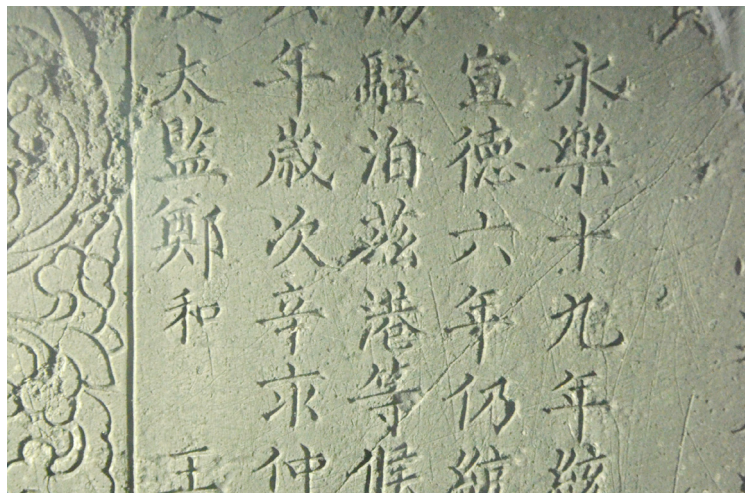 永樂十九年統
宣德六年仍統
駐泊茲港等候
年歲次辛亥仲
太監鄭和 王